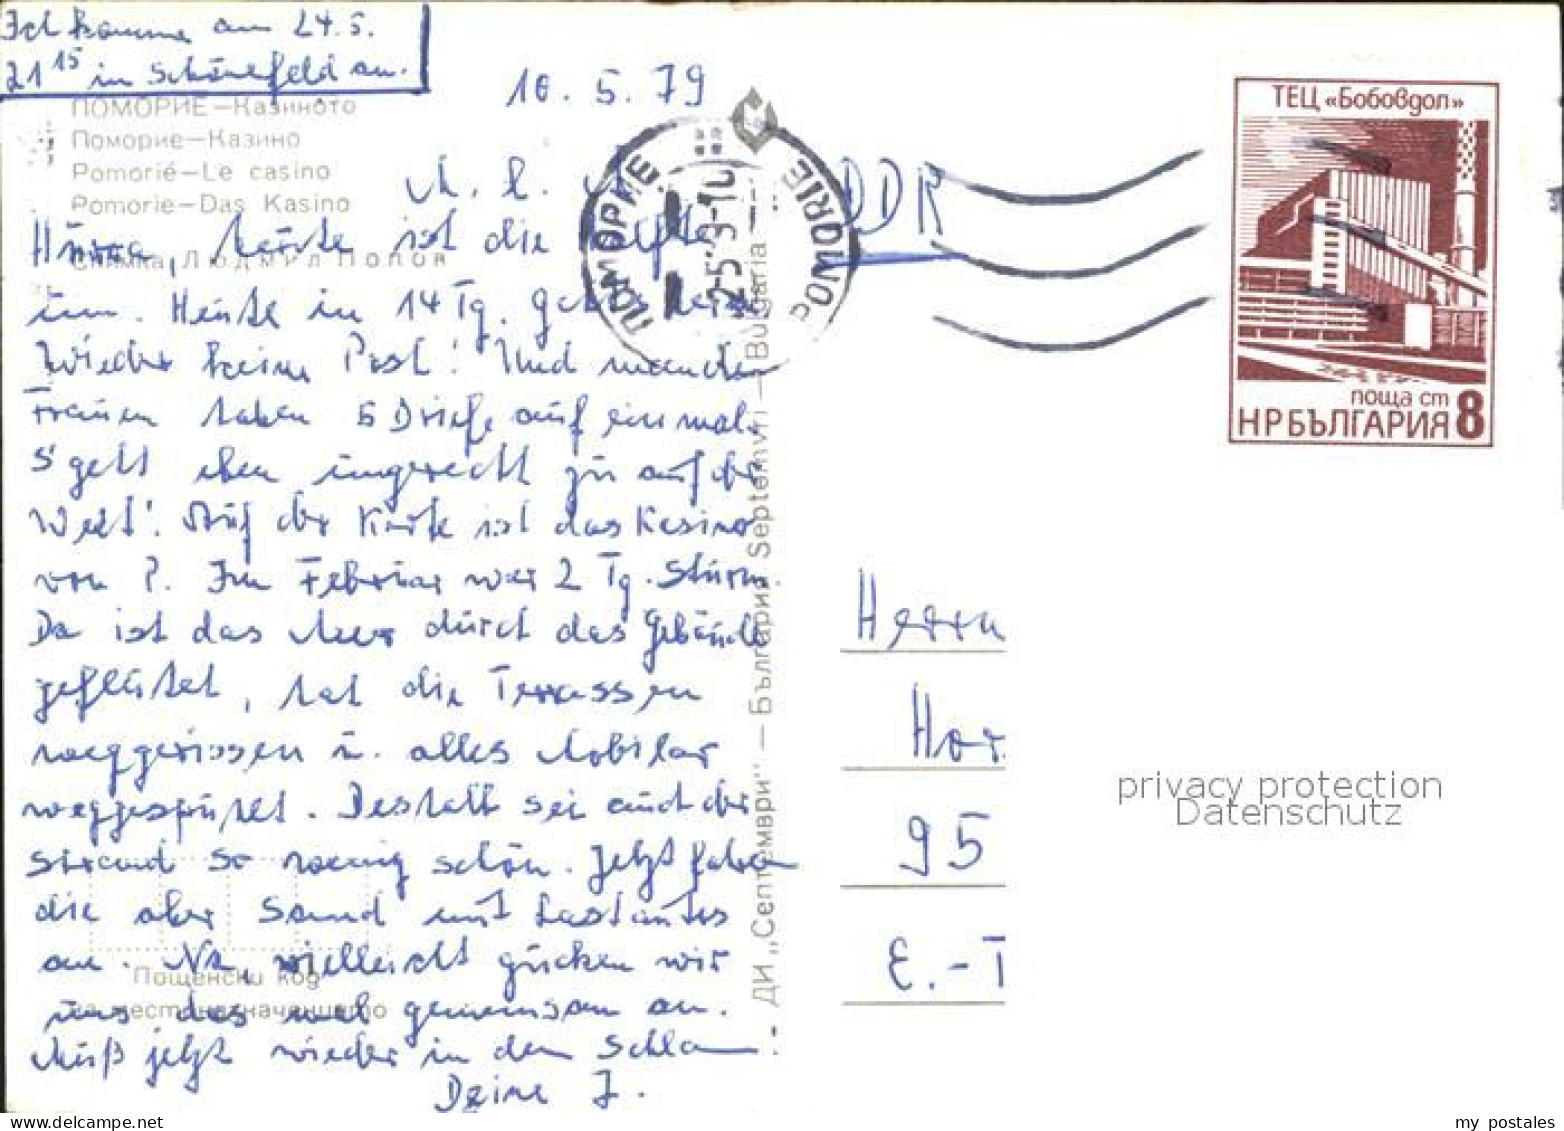 Ich komme am 24.5.
21 15 in Schönefeld an.
ПОМОРИЕ—Казиното
Поморие—Казино
Pomorié—Le casino
Pomorie—Das Kasino
Снимка Людмил Попов
10. 5. 79
M. l.
DDR
ПОМОРИЕ
POMORIE
ТЕЦ «Бобовдол»
поща ст
НР БЪЛГАРИЯ 8
heute ist die Hälfte
um. Heute in 14 Tg. geht's
Wieder keine Post! Und manche
Frauen haben 5 Briefe auf einmal.
S'geht eben ungerecht zu auf der
Welt! Auf der Karte ist das Kasino
von P. Im Februar war 2 Tg. Sturm.
Da ist das Meer durch das Gebäude
geflutet, hat die Terrassen
weggerissen u. alles Mobilar
weggespült. Deshalb sei auch der
Strand so wenig schön. Jetzt fahren
die aber Sand mit Lastautos
an. Na, vielleicht gucken wir
uns das mal gemeinsam an.
Muß jetzt wieder in den Schlamm.
Deine J.
Пощенски код
на местоназначението
ДИ „Септември" — България Septemvri — Bulgaria
Herrn
Hor
95
E.-T
privacy protection
Datenschutz
my postales